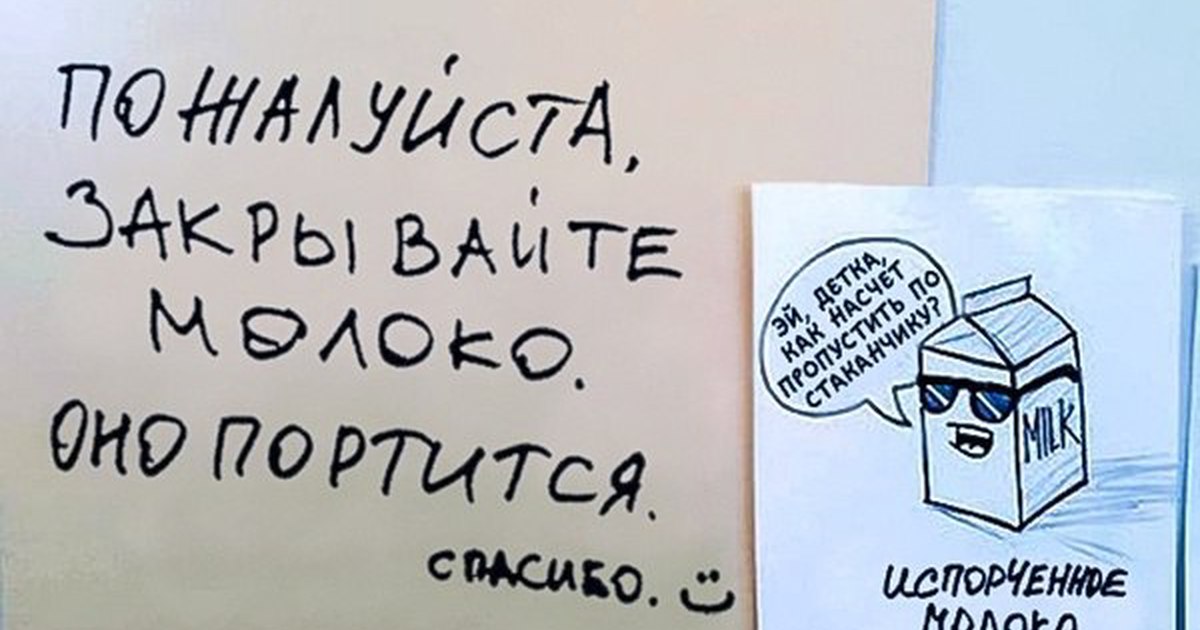 ПОЖАЛУЙСТА,
ЗАКРЫВАЙТЕ
МОЛОКО.
ОНО ПОРТИТСЯ.
СПАСИБО.
ЭЙ, ДЕТКА,
КАК НАСЧЕТ
ПРОПУСТИТЬ ПО
СТАКАНЧИКУ?
MILK
ИСПОРЧЕННОЕ
МОЛОКО